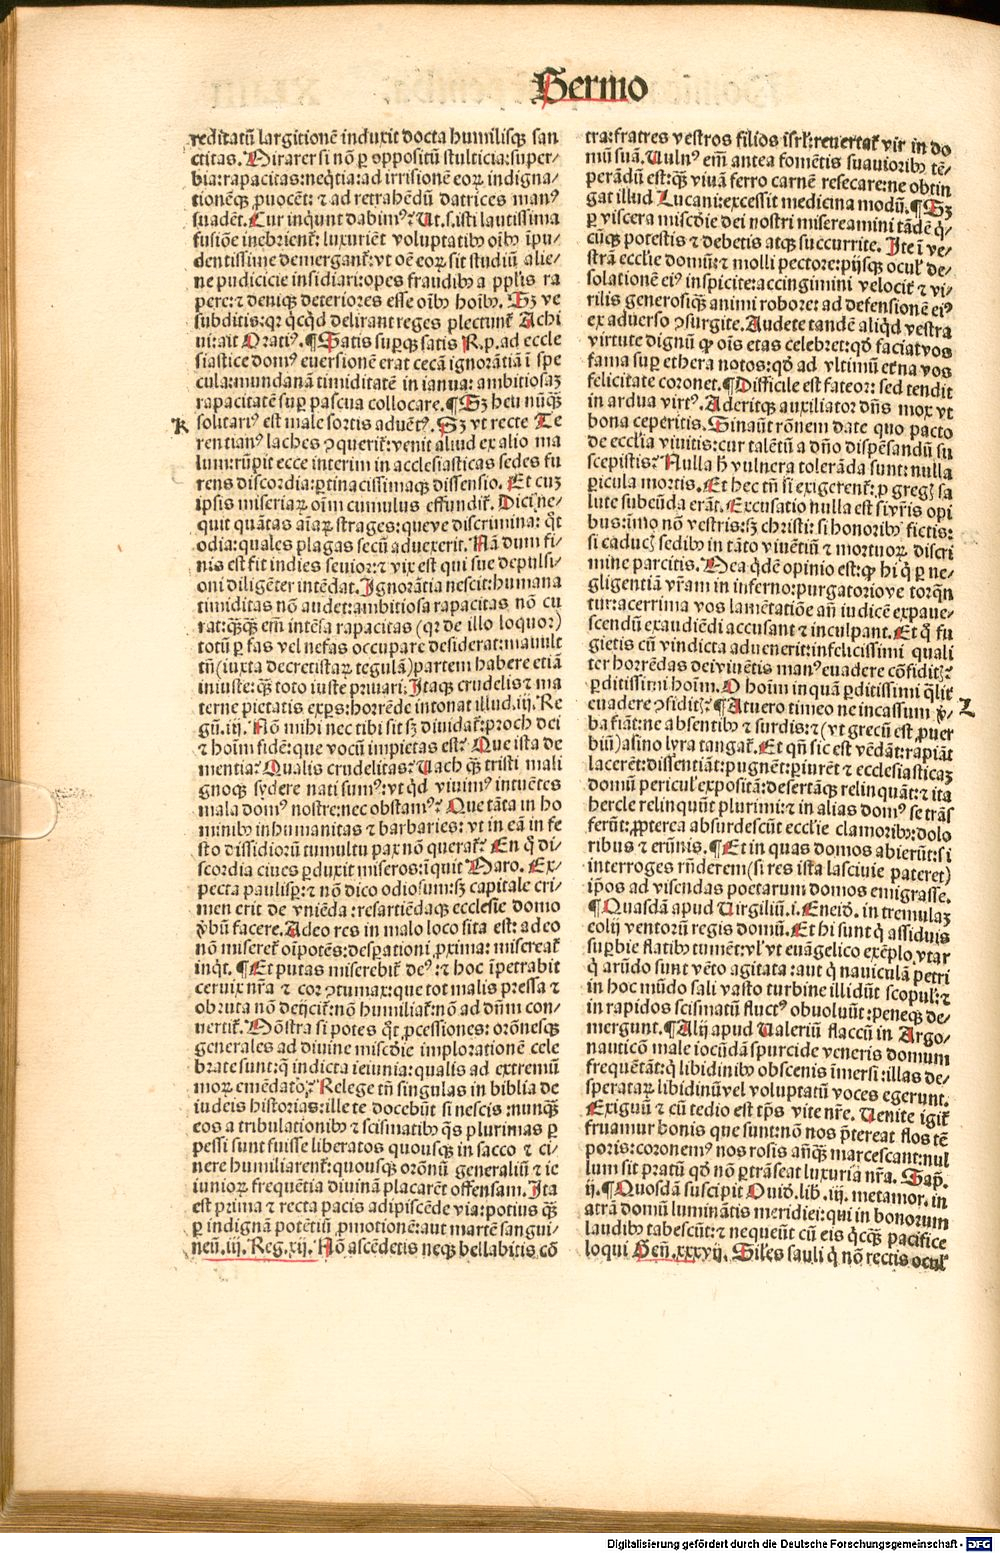 Sermo
reditatū largitionē induxit docta humilisqꝫ san
ctitas. Mirarer si nō ꝑ oppositū stulticia: super⸗
bia: rapacitas: neqͥtia: ad irrisionē eoꝝ indigna⸗
tionēqꝫ ꝓuocēt: ⁊ ad retrahēdū datrices manꝰ
suadēt. Cur inqͥunt dabimꝰ? Ut .s. isti lautissima
fusiōe inebrient᷑: luxuriēt voluptatibꝰ oībꝰ īpu⸗
dentissime demergant᷑: vt oē eoꝝ sit studiū alie⸗
ne pudicicie insidiari: opes fraudibꝰ a pplis ra
pere: ⁊ deniqꝫ deteriores esse oībꝰ hoībꝰ. Sꝫ ve
subditis: qꝛ qͥcqͥd delirant reges plectunt᷑ Achi
ui: ait Oratiꝰ. ¶ Satis suꝑqꝫ satis R. p. ad eccle
siastice domꝰ euersionē erat cecā ignorātiā ī spe
cula: mundanā timiditatē in ianua: ambitiosaꝫ
rapacitatē suꝑ pascua collocare. ¶ Sꝫ heu nūqͣꝫ
K solitariꝰ est male sortis aduētꝰ. Sꝫ vt recte Te
rentianꝰ laches ↄquerit᷑: venit aliud ex alio ma
lum: rūpit ecce interim in acclesiasticas sedes fu
rens discordia: ꝑtinacissimaqꝫ dissensio. Et cuꝫ
ipsis miseriaꝝ oīm cumulus effundit᷑. Dici ne⸗
quit quātas aīaꝝ strages: queve discrimina: qͣt
odia: quales plagas secū aduexerit. Nā dum fi⸗
nis est fit indies seuior: ⁊ vix est qui sue depulsi⸗
oni diligēter intēdat. Ignorātia nescit: humana
timiditas nō audet: ambitiosa rapacitas nō cu
rat: qͣꝫqͣꝫ em̄ intēsa rapacitas (qꝛ de illo loquor)
totū ꝑ fas vel nefas occupare desiderat: mauult
tn̄ (iuxta decretistaꝝ regulā) partem habere etiā
iniuste: qͣꝫ toto iuste priuari. Itaqꝫ crudelis ⁊ ma
terne pietatis exꝑs: horrēde intonat illud. iij. Re
gū. iij. Nō mihi nec tibi sit sꝫ diuidat᷑: proch dei
⁊ hoīm fidē: que vocū impietas est? Que ista de
mentia? Qualis crudelitas? Uach qͣꝫ tristi mali
gnoqꝫ sydere nati sumꝰ: vt qͥd viuimꝰ intuētes
mala domꝰ nostre: nec obstamꝰ? Que tāta in ho
minibꝰ inhumanitas ⁊ barbaries: vt in eā in fe
sto dissidiorū tumultu pax nō querat᷑? En qͦ di⸗
scordia ciues ꝑduxit miseros: īquit Maro. Ex⸗
pecta paulisꝑ: ⁊ nō dico odiosum: sꝫ capitale cri⸗
men erit de vniēda: resartiēdaqꝫ ecclesie domo
ꝟbū facere. Adeo res in malo loco sita est: adeo
nō miseret᷑ oīpotēs: desꝑationi ꝓxima: misereat᷑
inqͥt. ¶ Et putas miserebit᷑ deꝰ: ⁊ hoc īpetrabit
ceruix nr̄a ⁊ cor ↄtumax: que tot malis pressa ⁊
obruta nō deijcit᷑: nō humiliat᷑: nō ad dn̄m con⸗
uertit᷑. Mōstra si potes qͣt ꝓcessiones: orōnesqꝫ
generales ad diuine miscd̓ie implorationē cele
brate sunt: qͣ indicta ieiunia: qualis ad extremū
moꝝ emēdatō? Relege tn̄ singulas in biblia de
iudeis historias: ille te docebūt si nescis: nunqͣꝫ
eos a tribulationibꝰ ⁊ scismatibꝰ qͣs plurimas ꝑ
pessi sunt fuisse liberatos quousqꝫ in sacco ⁊ ci⸗
nere humiliarent᷑: quousqꝫ orōnū generaliū ⁊ ie
iuniorꝝ frequētia diuinā placarēt offensam. Ita
est prima ⁊ recta pacis adipiscēde via: potius qͣꝫ
ꝑ indignā potētiū ꝓmotionē: aut martē sangui⸗
neū. iij. Reg. xij. Nō ascēdetis neqꝫ bellabitis cō
tra: fratres vestros filios isrl̓: reuertat᷑ vir in do
mū suā. Uulnꝰ em̄ antea fomētis suauioribꝰ tē⸗
perādū est: qͣꝫ viuā ferro carnē resecare: ne obtin
gat illud Lucani: excessit medicina modū. ¶ Sꝫ
ꝑ viscera miscd̓ie dei nostri misereamini tādē qͥ⸗
cūqꝫ potestis ⁊ debetis atqꝫ succurrite. Ite ī ve⸗
strā eccl̓ie domū: ⁊ molli pectore: pijsqꝫ ocul̓ de⸗
solationē eiꝰ inspicite: accingimini velocit᷑ ⁊ vi⸗
rilis generosiqꝫ animi robore: ad defensionē eiꝰ
ex aduerso ↄsurgite. Audete tandē aliqͥd vestra
virtute dignū ꝙ oīs etas celebret: qd̓ faciat vos
fama suꝑ ethera notos: qd̓ ad vltimū etna vos
felicitate coronet. ¶ Difficile est fateor: sed tendit
in ardua virtꝰ. Aderitqꝫ auxiliator dn̄s mox vt
bona ceperitis. Sin aūt rōnem date quo pacto
de eccl̓ia viuitis: cur talētū a dn̄o dispēsandū su
scepistis? Nulla h̓ vulnera tolerāda sunt: nulla
ꝑicula mortis. Et hec tn̄ si exigerent᷑: ꝓ gregꝭ sa
lute subeūda erāt. Excusatio nulla est si vr̄is opi
bus: īmo nō vestris: sꝫ christi: si honoribꝰ fictis:
si caducꝭ sedibꝰ in tāto viuētiū ⁊ mortuoꝝ discri
mine parcitis. Mea qͥdē opinio est: ꝙ hi qͥ ꝑ ne⸗
gligentiā vr̄am in inferno: purgatoriove torqn̄
tur: acerrima vos lamētatiōe an̄ iudicē expaue⸗
scendū exaudiēdi accusant ⁊ inculpant. Et qͦ fu
gietis cū vindicta aduenerit: infelicissimi quali
ter horrēdas dei viuētis manꝰ euadere cōfiditꝭ?
ꝑditissimi hoīm. O hoīm inquā ꝑditissimi qͣlit̓
euadere ↄfiditꝭ? ¶ At vero timeo ne incassum ꝟ⸗ L
ba fiāt: ne absentibꝰ ⁊ surdis: ⁊ (vt grecū est ꝓuer
biū) asino lyra tangat᷑. Et qn̄ sic est vēdāt: rapiāt
lacerēt: dissentiāt: pugnēt: ꝑiurēt ⁊ ecclesiasticaꝫ
domū pericul̓ expositā: desertāqꝫ relinquāt: ⁊ ita
hercle relinquūt plurimi: ⁊ in alias domꝰ se trās
ferūt: ꝓpterea absurdescūt eccl̓ie clamoribꝰ: dolo
ribus ⁊ erūnis. ¶ Et in quas domos abierūt: si
interroges rn̄derem (si res ista lasciuie pateret)
ip̄os ad visendas poetarum domos emigrasse.
¶ Quasdā apud Virgiliū. i. Eneid̓. in tremulaꝫ
eolij ventorū regis domū. Et hi sunt qͥ assiduis
suꝑbie flatibꝰ tumēt: vl̓ vt euāgelico exēplo vtar
qͥ arūdo sunt vēto agitata: aut qͥ nauiculā petri
in hoc mūdo sali vasto turbine illidūt scopul̓: ⁊
in rapidos scismatū fluctꝰ obuoluūt: peneqꝫ de⸗
mergunt. ¶ Alij apud Ualeriū flaccū in Argo⸗
nauticō male iocūdā spurcide veneris domum
frequētāt: qͥ libidinibꝰ obscenis īmersi: illas de⸗
speratarꝝ libidinū vel voluptatū voces egerunt.
Exiguū ⁊ cū tedio est tp̄s vite nr̄e. Uenite igit᷑
fruamur bonis que sunt: nō nos p̄tereat flos tē
poris: coronemꝰ nos rosis an̄qͣꝫ marcescant: nul
lum sit pratū qd̓ nō ꝑtrāseat luxuria nr̄a. Sap̄.
ij. ¶ Quosdā suscipit Ouid̓. lib. iij. metamor. in
atrā domū luminātis meridiei: qui in bonorum
laudibꝰ tabescūt: ⁊ nequeūt cū eis qͥcqͣꝫ pacifice
loqui Gen̄. xxxvij. Siles sauli qͥ nō rectis ocul̓
Digitalisierung gefördert durch die Deutsche Forschungsgemeinschaft - DFG